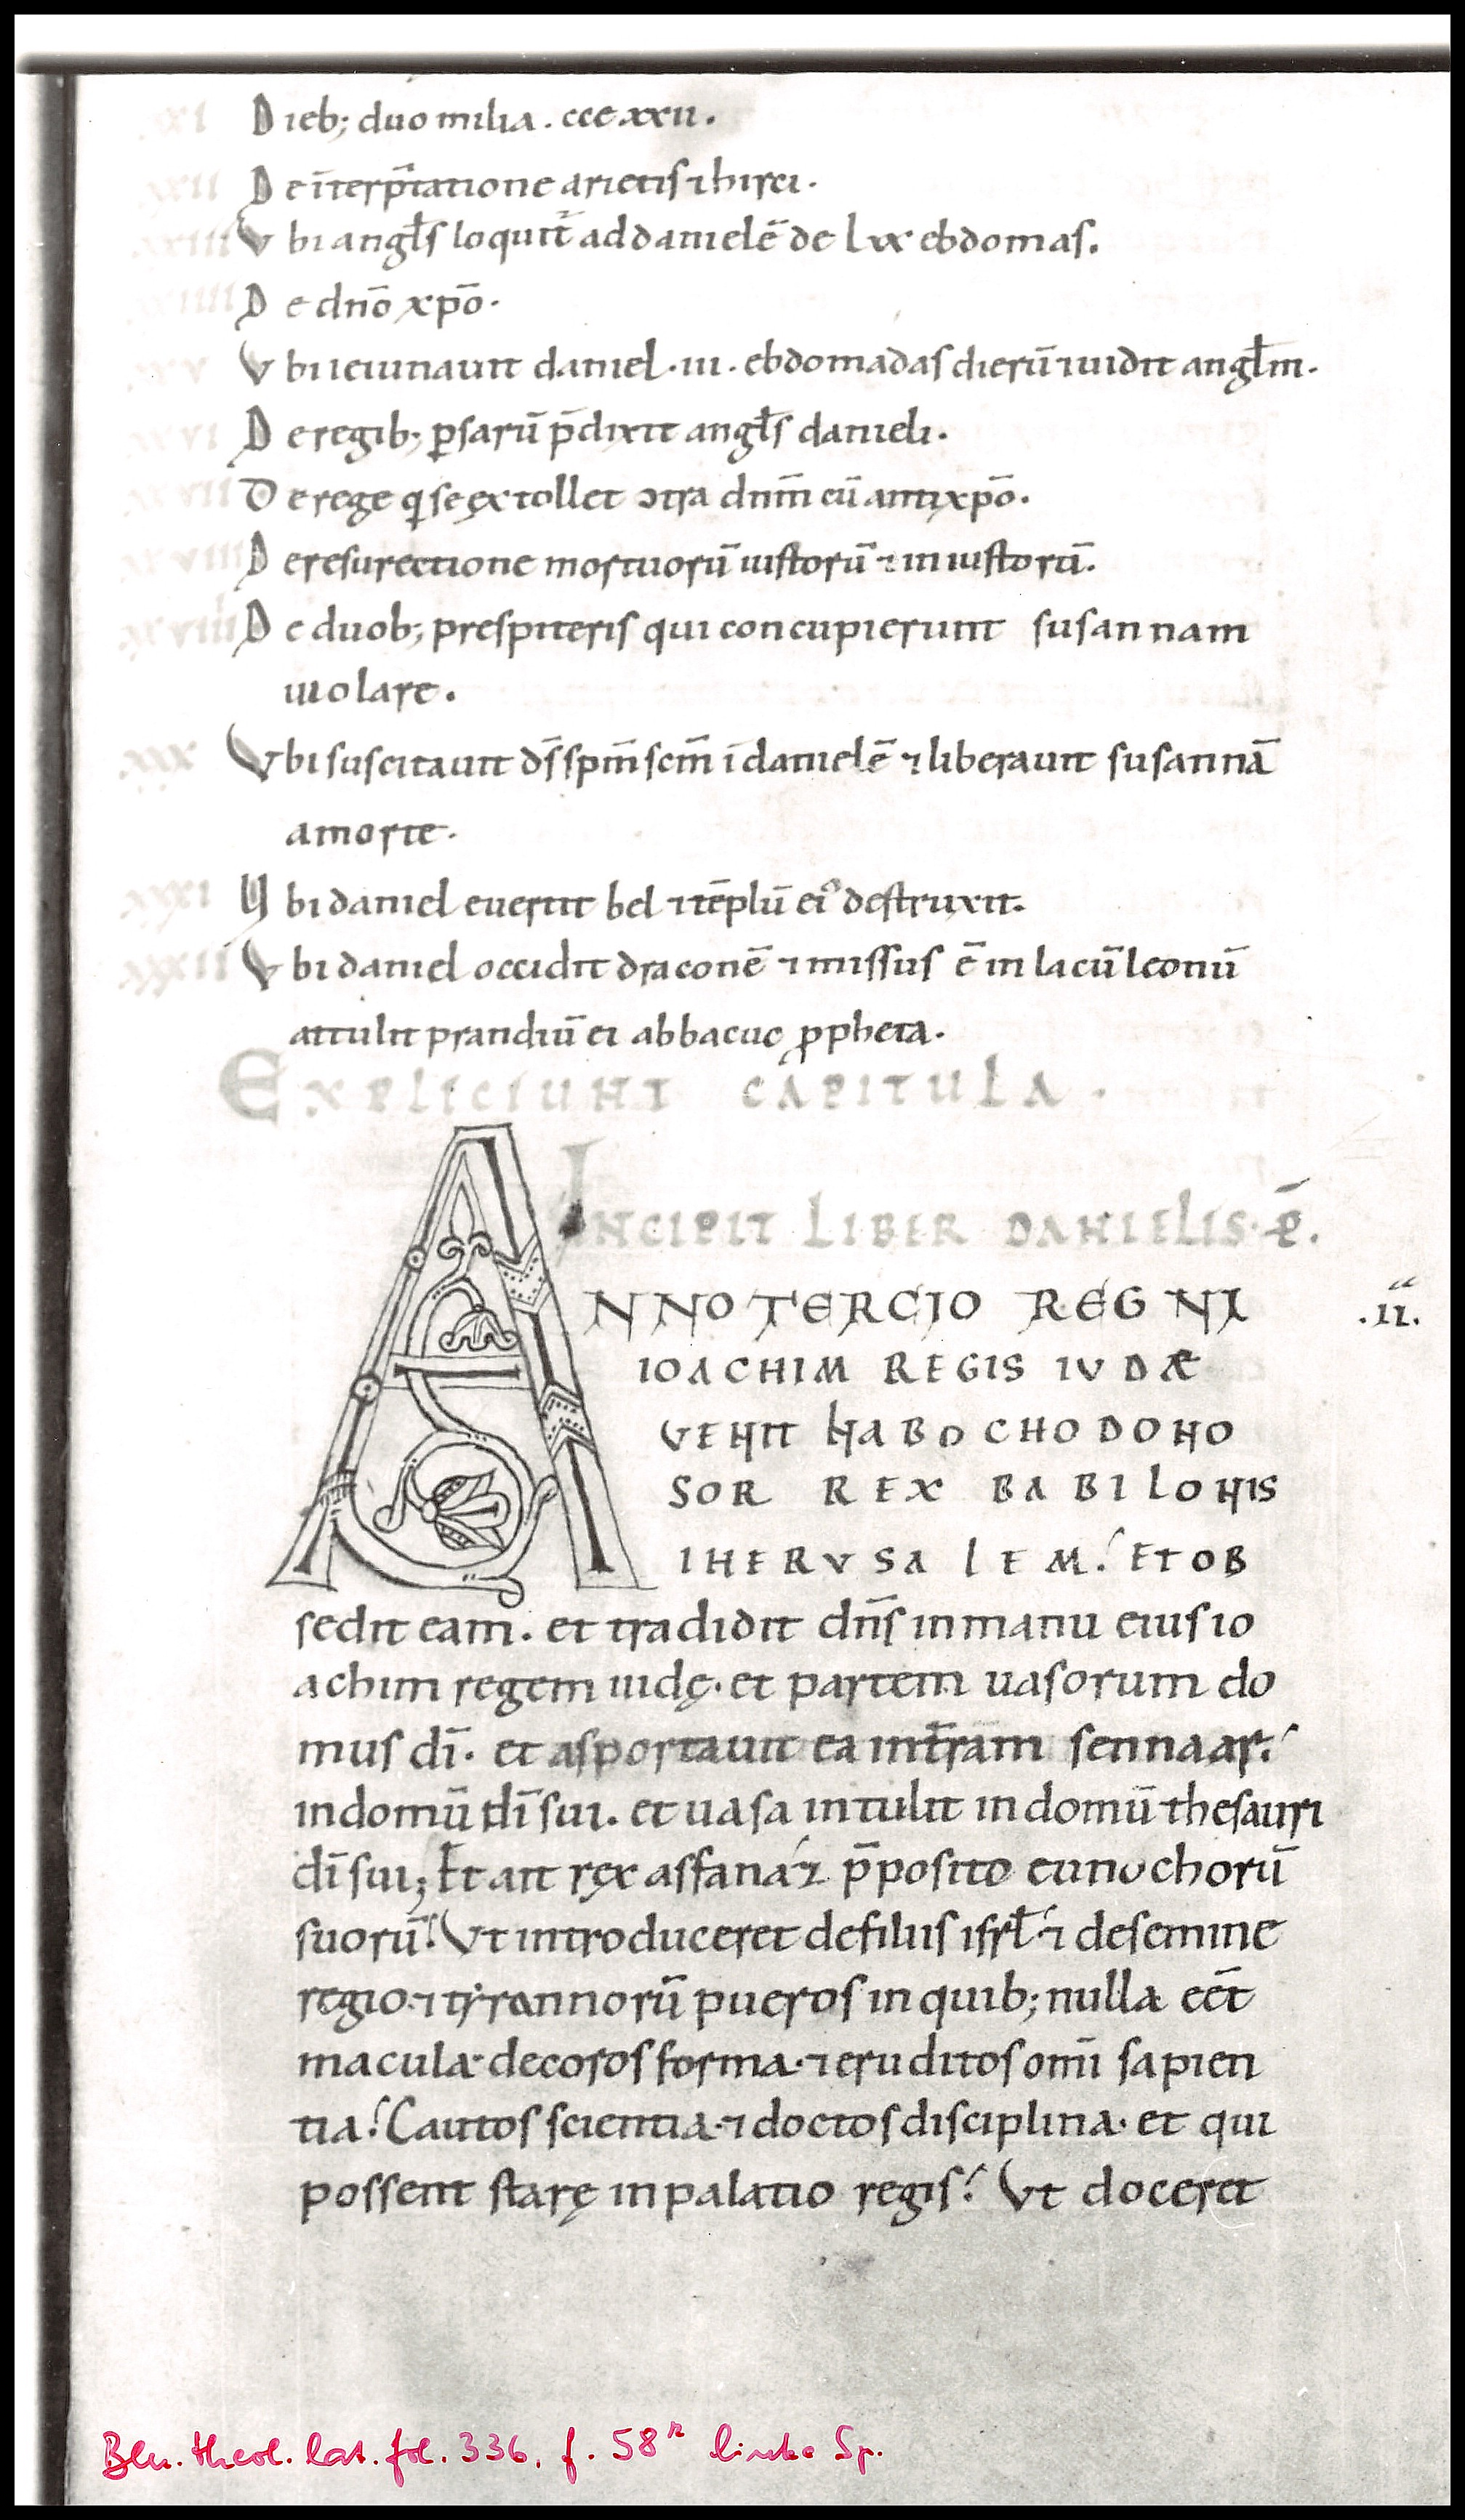 xxi Dieb; duo milia . ccc xxii .
xxii De īterp̄tatione arietis ⁊ hirci .
xxiii Vbi angl̄s loquit̄ ad danielē de lxx ebdomas .
xxiiii De dn̄o xp̄o .
xxv Vbi ieiunauit daniel . iii . ebdomadas dierū ⁊ uidit angl̄m .
xxvi De regib; ꝑsarū p̄dixit angl̄s danieli .
xxvii De rege qi se ęxtollet ↄtra dnm̄ cū antixp̄o .
xxviii De resurectione mortuorū iustorū ⁊ iniustorū .
xxviiii De duob; prespiteris qui concupierunt susannam
uiolare .
xxx Vbi suscitauit ds̄ spm̄ scm̄ ī danielē ⁊ liberauit susannā
a morte .
xxxi Vbi daniel euertit bel ⁊ tēplū ei⁹ destruxit .
xxxii Vbi daniel occidit draconē ⁊ missus ē in lacū leonū
attulit prandiū ei abbacuc ꝓpheta .
EXPLICIUNT CAPITULA .
INCIPIT LIBER DANIELIS . P̄ .
ANNO TERCIO REGNI
.ii.
IOACHIM REGIS IVDÆ
VENIT NABOCHODONO
SOR REX BABILONIS
IHERVSALEM . ET OB
sedit eam . et tradidit dn̄s in manu eius io
achim regem iudę . et partem uasorum do
mus dī . et asportauit ea in tr̄am sennaar .
in domū dī sui . et uasa intulit in domū thesauri
dī sui ; Et ait ręx assanaz p̄posito eunuchorū
suorū . Vt introduceret de filiis isrl̄ . ⁊ de semine
regio . ⁊ tyrannorū pueros in quib; nulla eēt
macula . decoros forma . ⁊ eruditos omī sapien
tia . Cautos scientia . ⁊ doctos disciplina . et qui
possent starę in palatio regis . Vt doceret
Bln. theol. lat. fol. 336, f. 58r linke Sp.